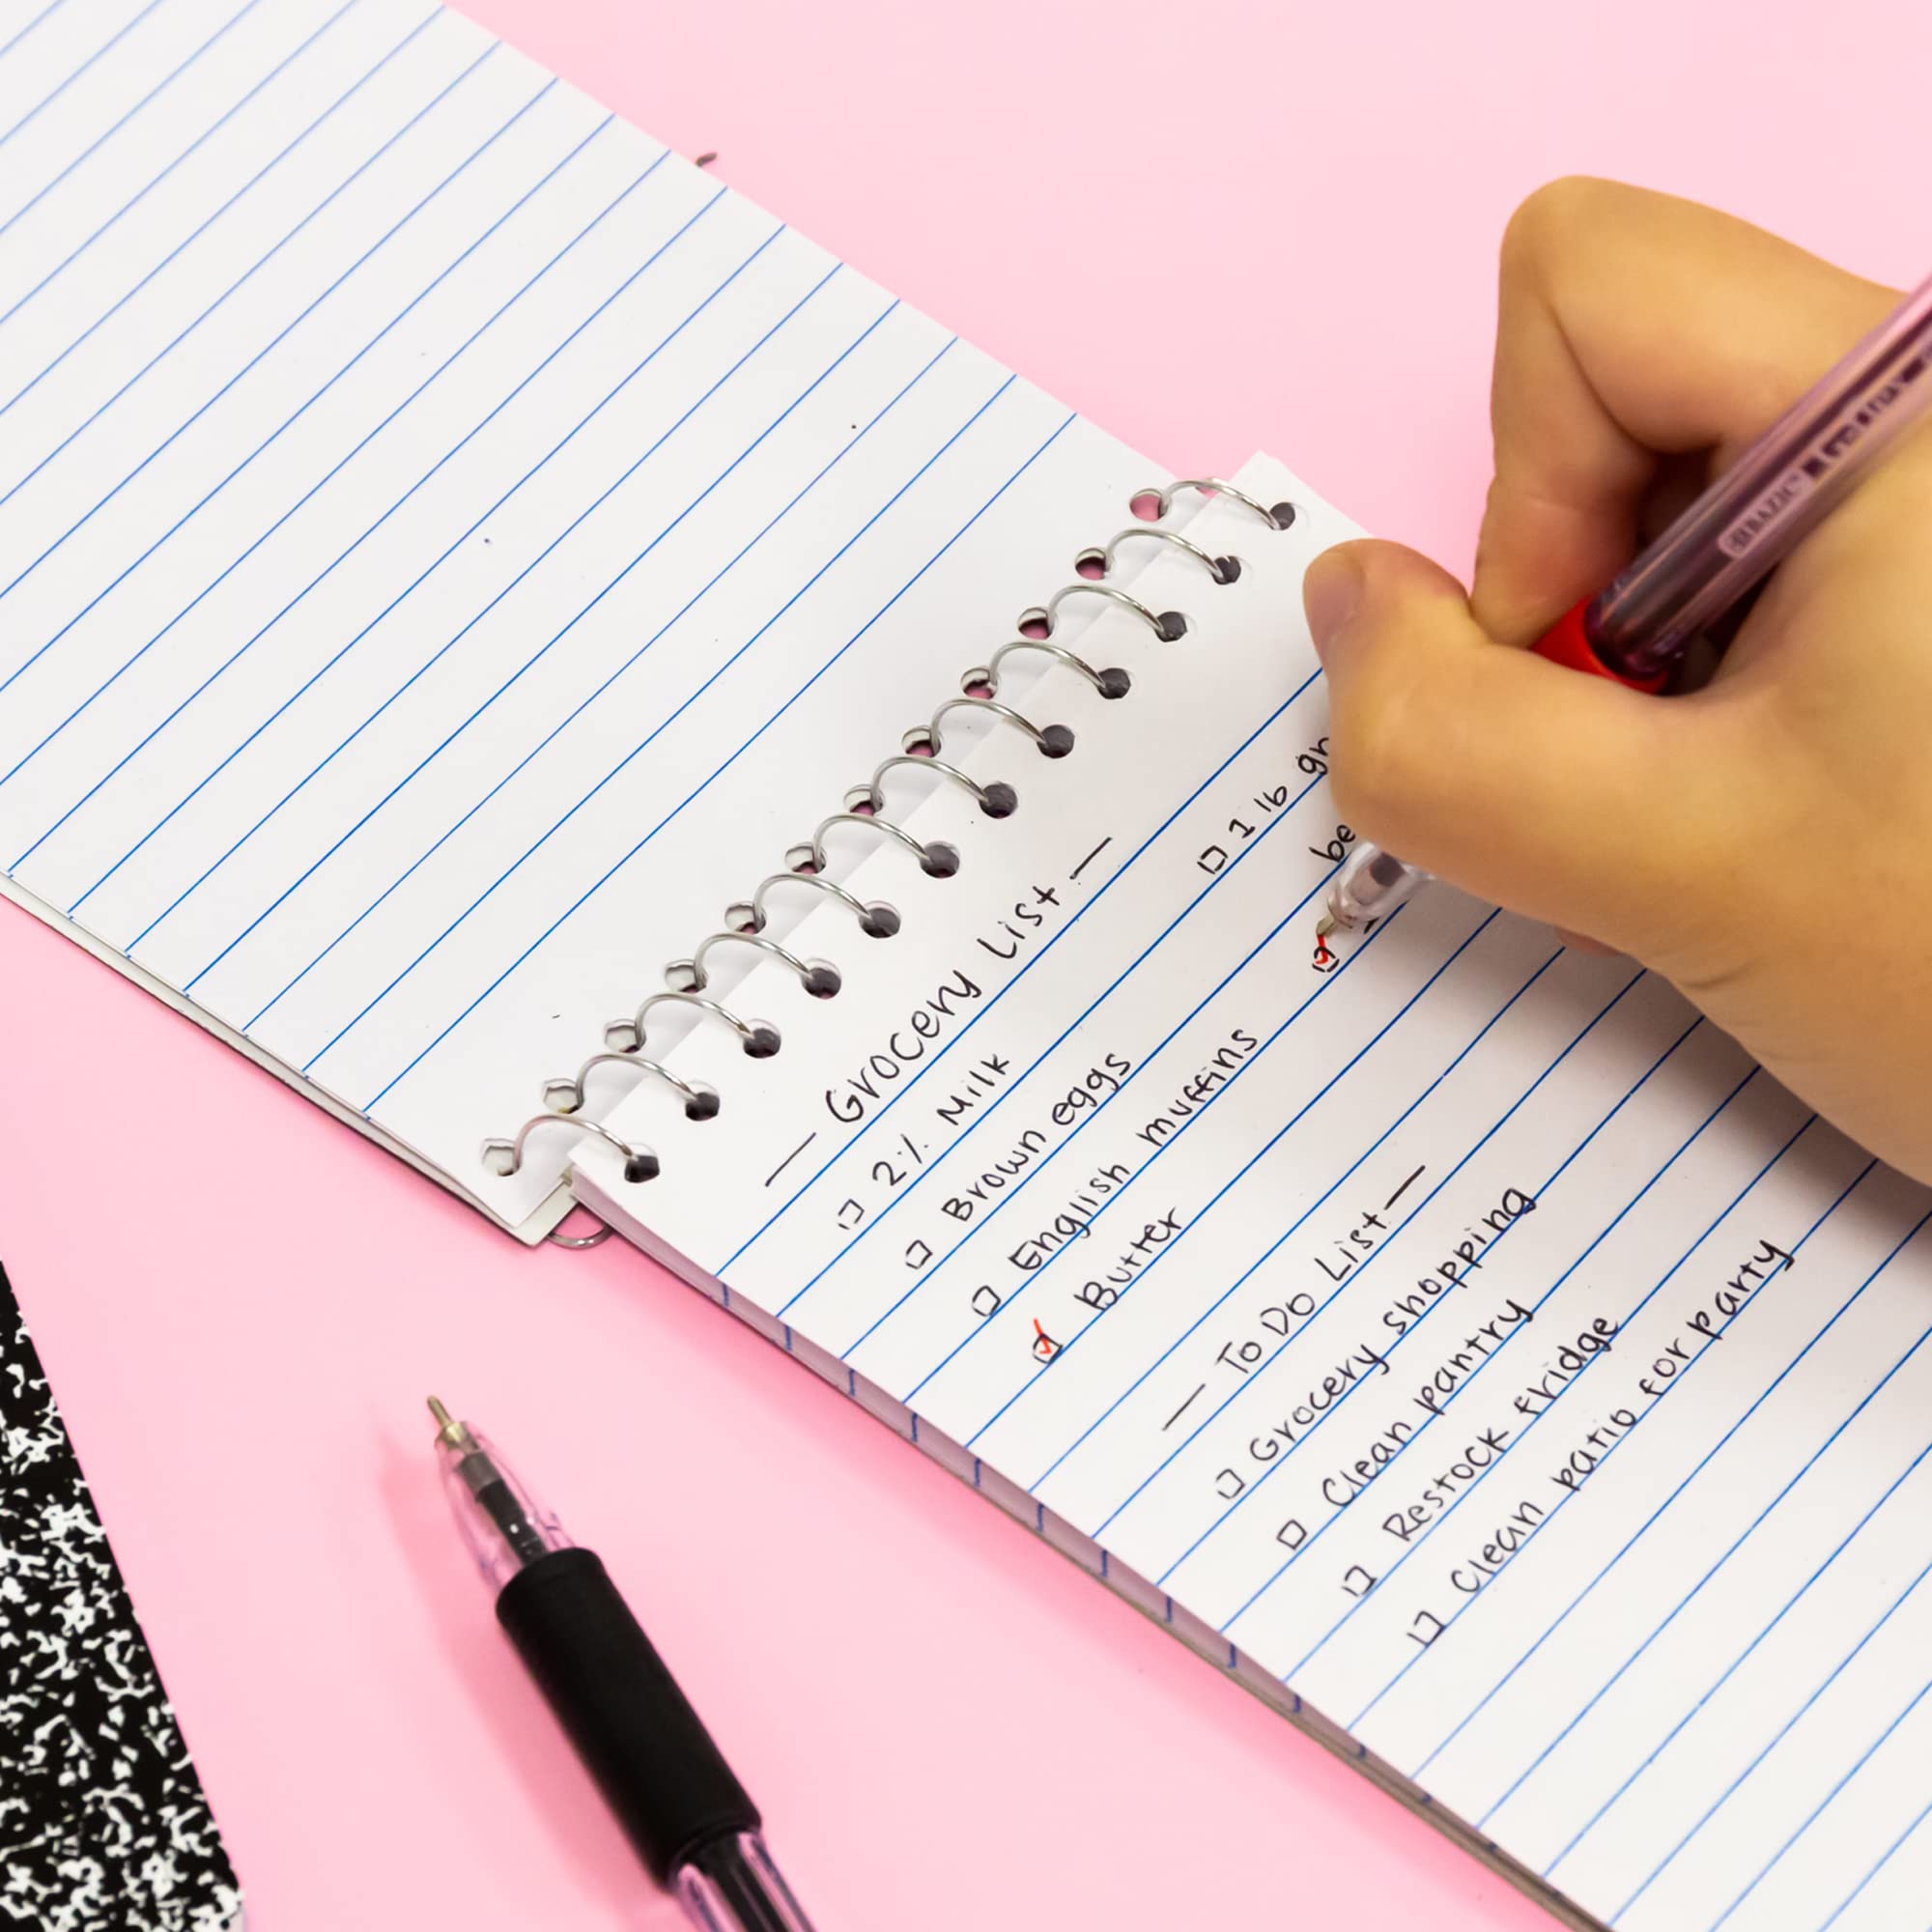 — Grocery List —
☐ 2% Milk
☐ Brown eggs
☐ English muffins
☑ Butter
☐ 1 lb gr
be
☑
— To Do List —
☐ Grocery shopping
☐ Clean pantry
☐ Restock fridge
☐ Clean patio for party
BAZIC